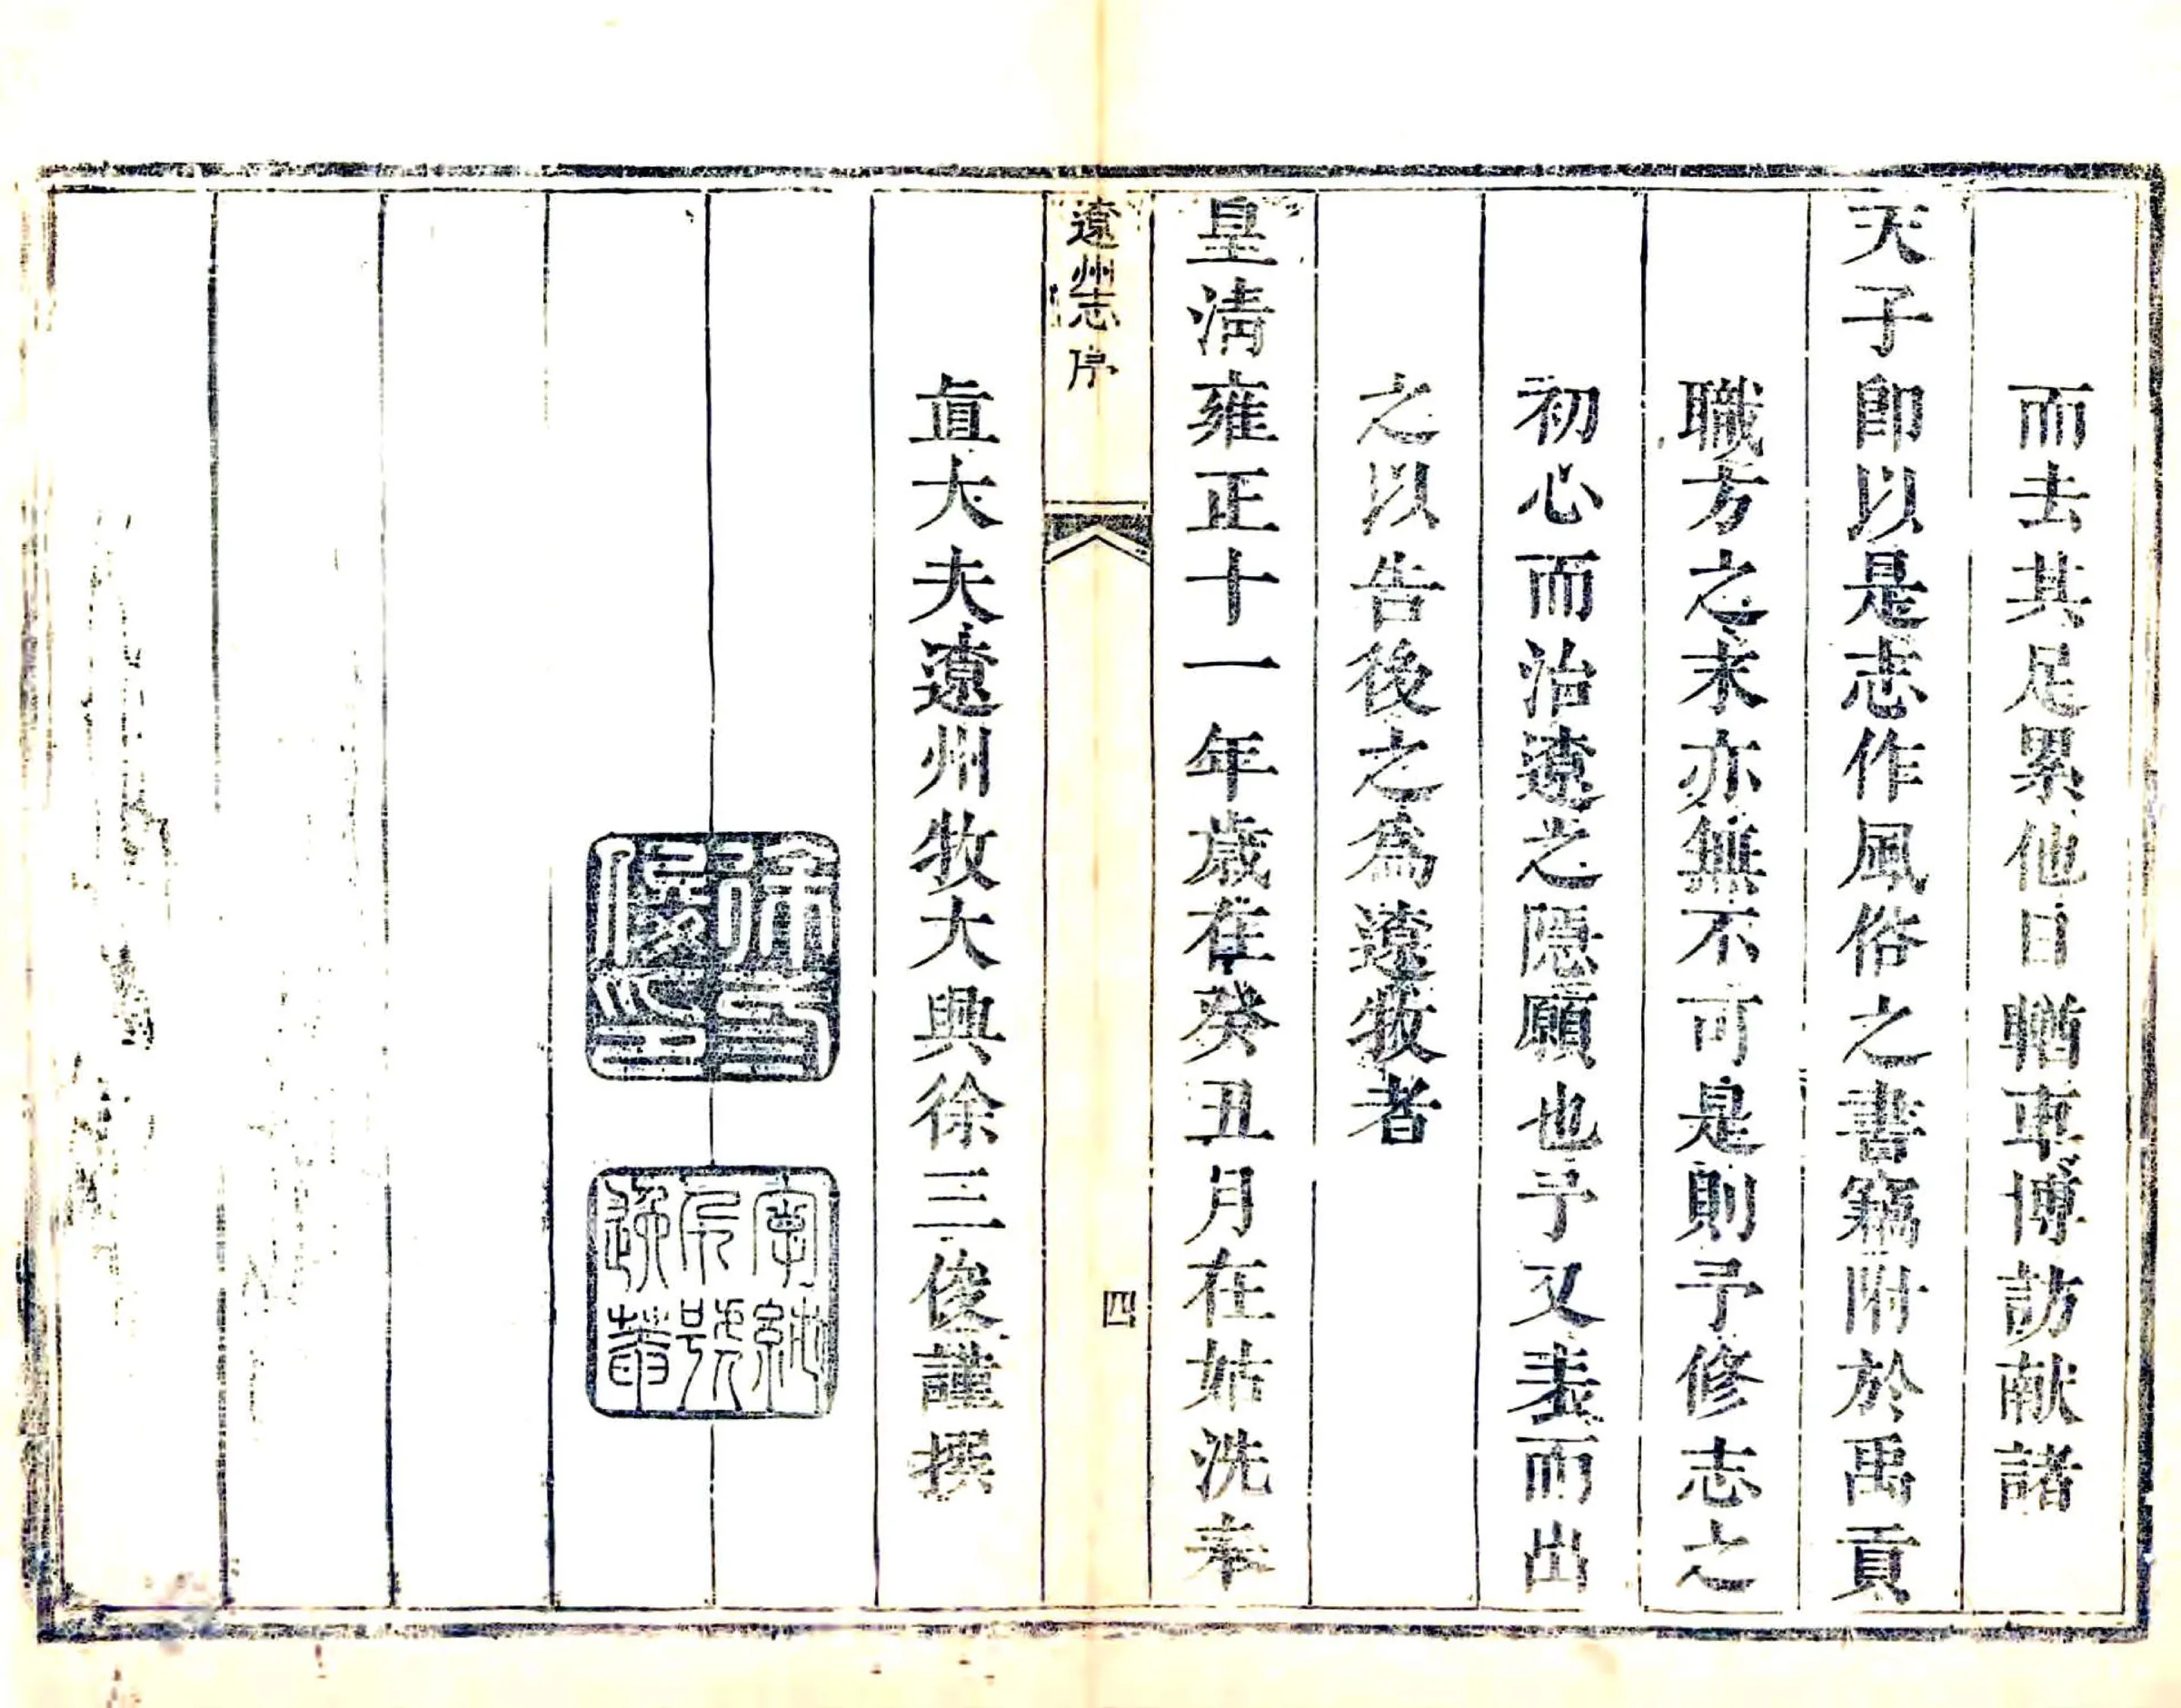 而去其足累他日輶車博訪献諸
天子卽以是志作風俗之書竊附於禹貢
職方之末亦無不可是則予修志之
初心而治遼之隱願也予又表而出
之以告後之為遼牧者
皇清雍正十一年歲在癸丑月在姑洗奉
遼州志 序
四
直大夫遼州牧大興徐三俊謹撰
徐三俊印